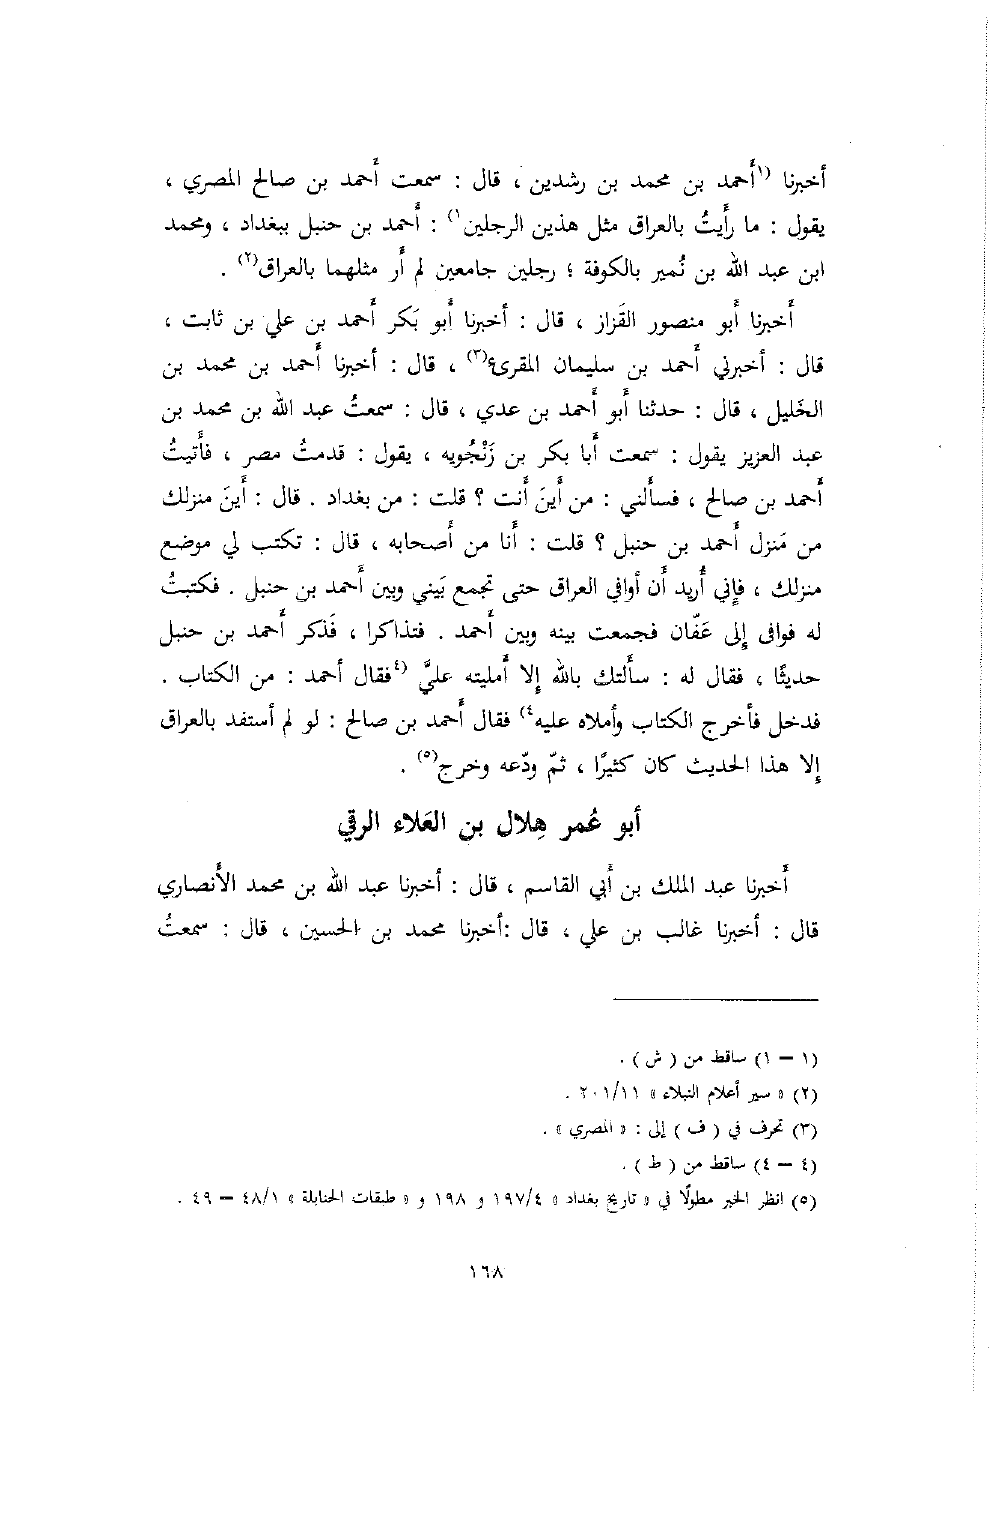 أخبرنا (١أحمد بن محمد بن رشدين ، قال : سمعت أحمد بن صالح المصري ،
يقول : ما رأيتُ بالعراق مثل هذين الرجلين١) : أحمد بن حنبل ببغداد ، ومحمد
ابن عبد الله بن نُمير بالكوفة ؛ رجلين جامعين لم أر مثلهما بالعراق(٢) .
أخبرنا أبو منصور القَزاز ، قال : أخبرنا أبو بَكر أحمد بن علي بن ثابت ،
قال : أخبرني أحمد بن سليمان المقرئ(٣) ، قال : أخبرنا أحمد بن محمد بن
الخَليل ، قال : حدثنا أبو أحمد بن عدي ، قال : سمعتُ عبد الله بن محمد بن
عبد العزيز يقول : سمعت أبا بكر بن زَنْجُويه ، يقول : قدمتُ مصر ، فأتيتُ
أحمد بن صالح ، فسألني : من أينَ أنت ؟ قلت : من بغداد . قال : أينَ منزلك
من مَنزل أحمد بن حنبل ؟ قلت : أنا من أصحابه ، قال : تكتب لي موضع
منزلك ، فإني أُريد أن أوافي العراق حتى تجمع بَيني وبين أحمد بن حنبل . فكتبتُ
له فوافى إلى عَفّان فجمعت بينه وبين أحمد . فتذاكرا ، فَذكر أحمد بن حنبل
حديثًا ، فقال له : سألتك بالله إلا أمليته عليَّ (٤فقال أحمد : من الكتاب .
فدخل فأخرج الكتاب وأملاه عليه٤) فقال أحمد بن صالح : لو لم أستفد بالعراق
إلا هذا الحديث كان كثيرًا ، ثمّ ودّعه وخرج(٥) .
أبو عُمر هِلال بن العَلاء الرقي
أخبرنا عبد الملك بن أبي القاسم ، قال : أخبرنا عبد الله بن محمد الأنصاري
قال : أخبرنا غالب بن علي ، قال :أخبرنا محمد بن الحسين ، قال : سمعتُ
(١ – ١) ساقط من ( ش ) .
(٢) « سير أعلام النبلاء » ٢٠١/١١ .
(٣) تحرف في ( ف ) إلى : « المصري » .
(٤ – ٤) ساقط من ( ط ) .
(٥) انظر الخبر مطولًا في « تاريخ بغداد » ١٩٧/٤ و ١٩٨ و « طبقات الحنابلة » ٤٨/١ – ٤٩ .
١٦٨